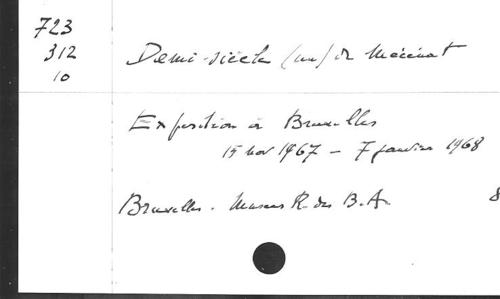 723
312
10
Demi-siècle (un) de Mécénat
Exposition à Bruxelles
15 nov 1967 - 7 janvier 1968
Bruxelles. Musées R. des B.A.
8